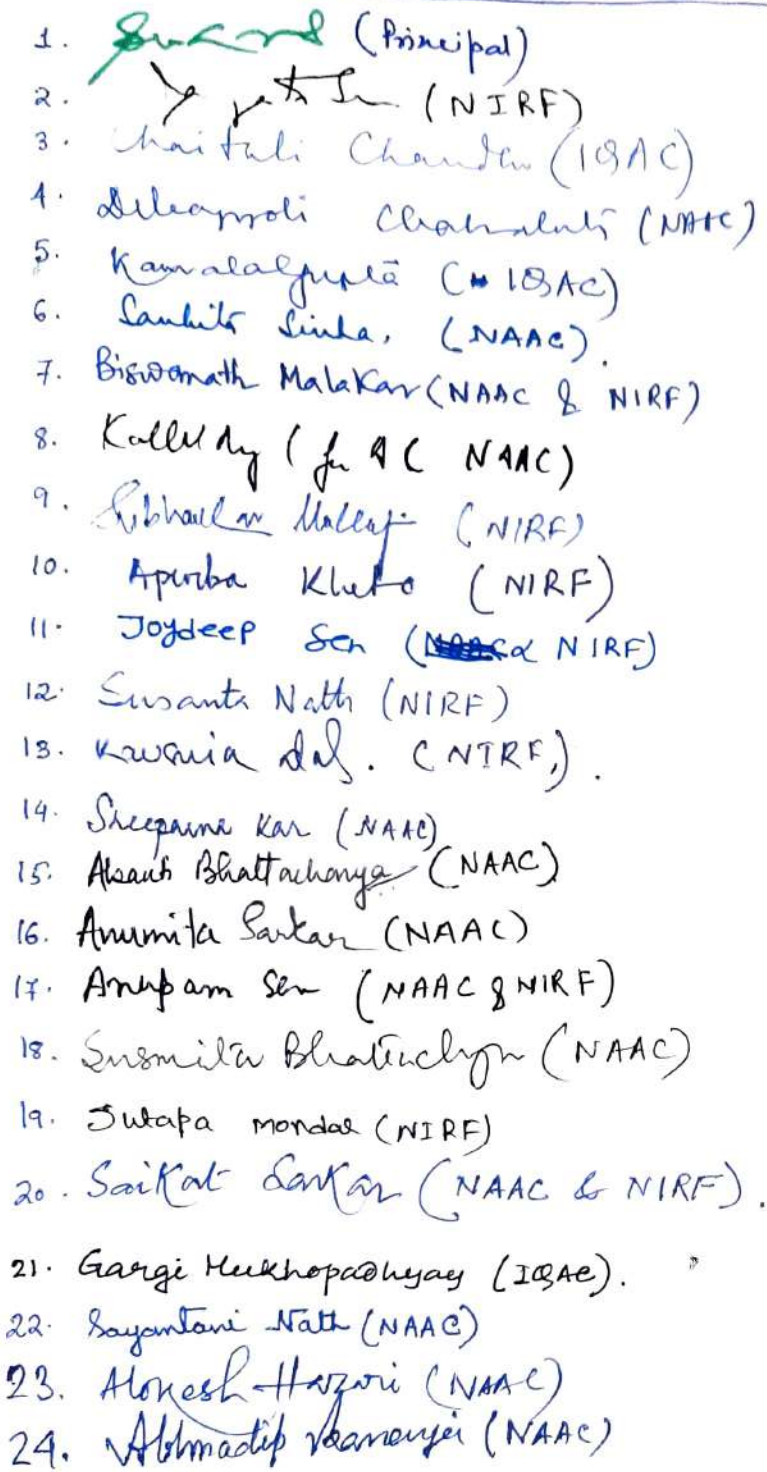 1. (Principal)
2. (NIRF)
3. Chaitali Chandra (IQAC)
4. Chakrabarti (NAAC)
5. Kamalalgupta (IQAC)
6. Sanhita Sinha, (NAAC).
7. Biswanath Malakar (NAAC & NIRF)
8. (NAAC)
9. (NIRF)
10. Apurba (NIRF)
11. Joydeep Sen (NIRF)
12. Susanta Nath (NIRF)
13. das. (NIRF).
14. Sreeparna Kar (NAAC)
15. Bhattacharya (NAAC)
16. Anumita Sarkar (NAAC)
17. Anupam Sen (NAAC & NIRF)
18. Susmita Bhattacharya (NAAC)
19. Sutapa Mondal (NIRF)
20. Saikat Sarkar (NAAC & NIRF).
21. Gargi Mukhopadhyay (IQAC).
22. Sayantani Nath (NAAC)
23. Alokesh Hazari (NAAC)
24. (NAAC)